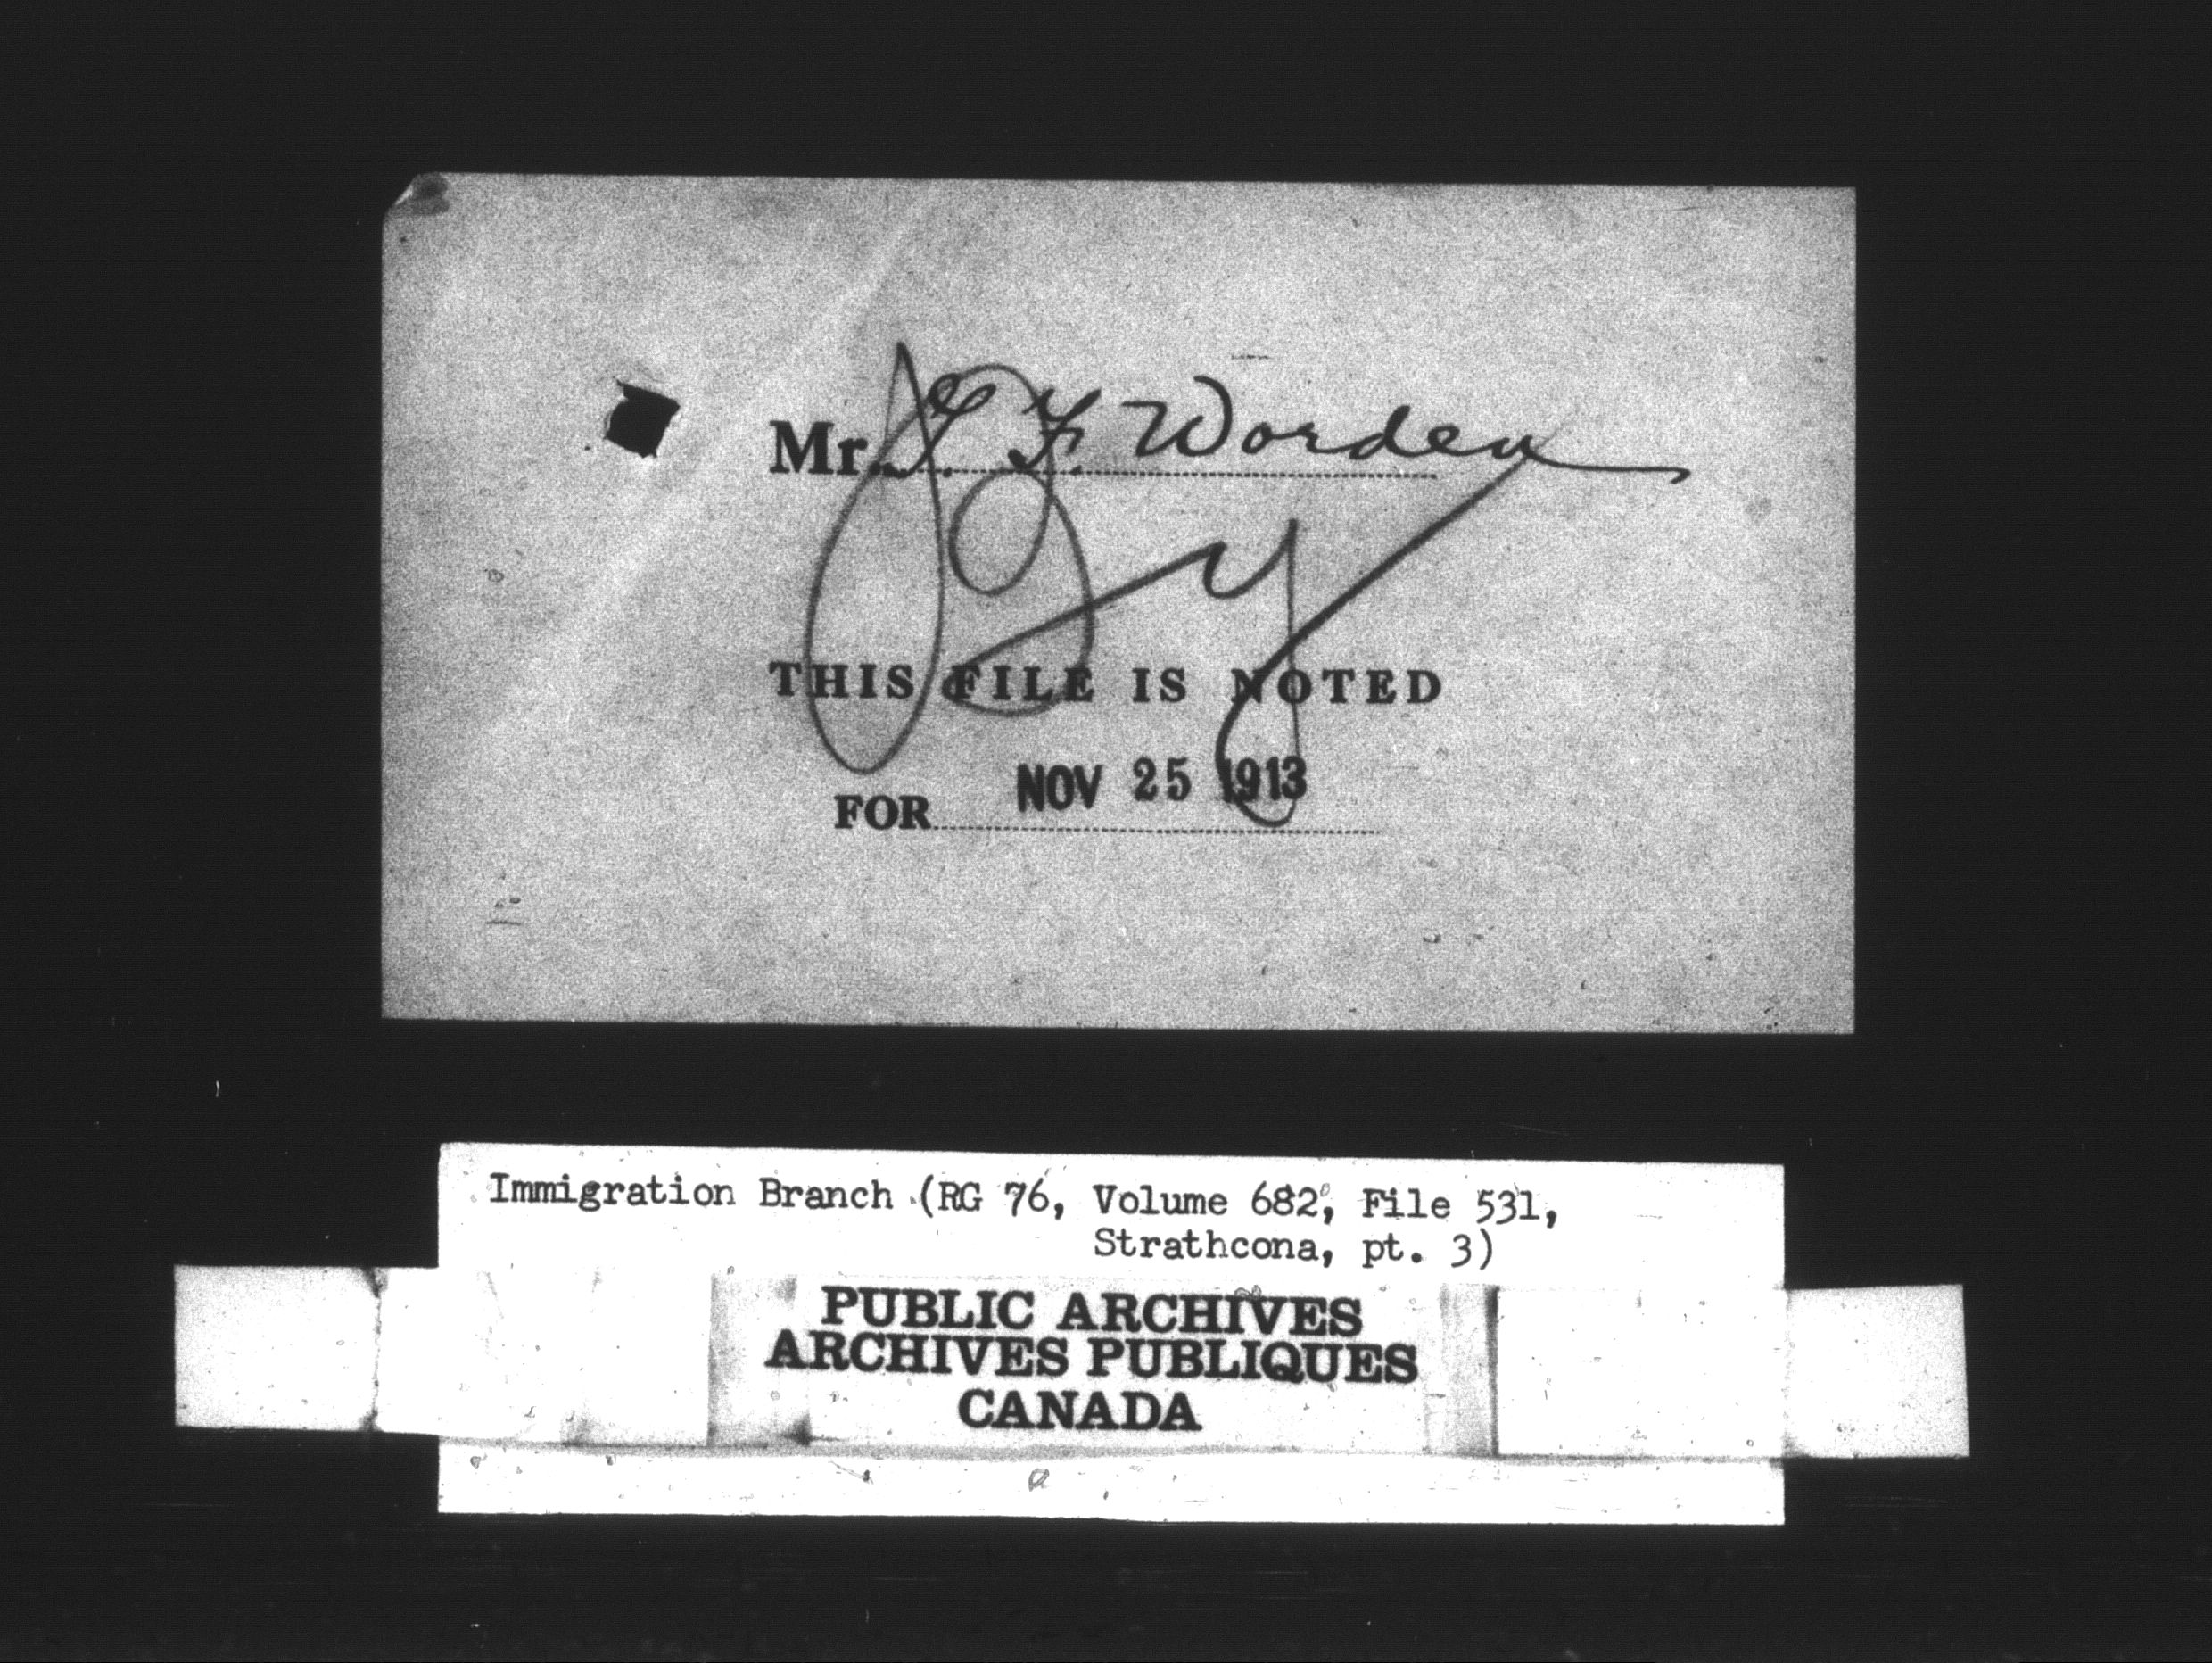 Mr. F. Worden
THIS FILE IS NOTED
FOR NOV 25 1913
Immigration Branch (RG 76, Volume 682, File 531,
Strathcona, pt. 3)
PUBLIC ARCHIVES
ARCHIVES PUBLIQUES
CANADA